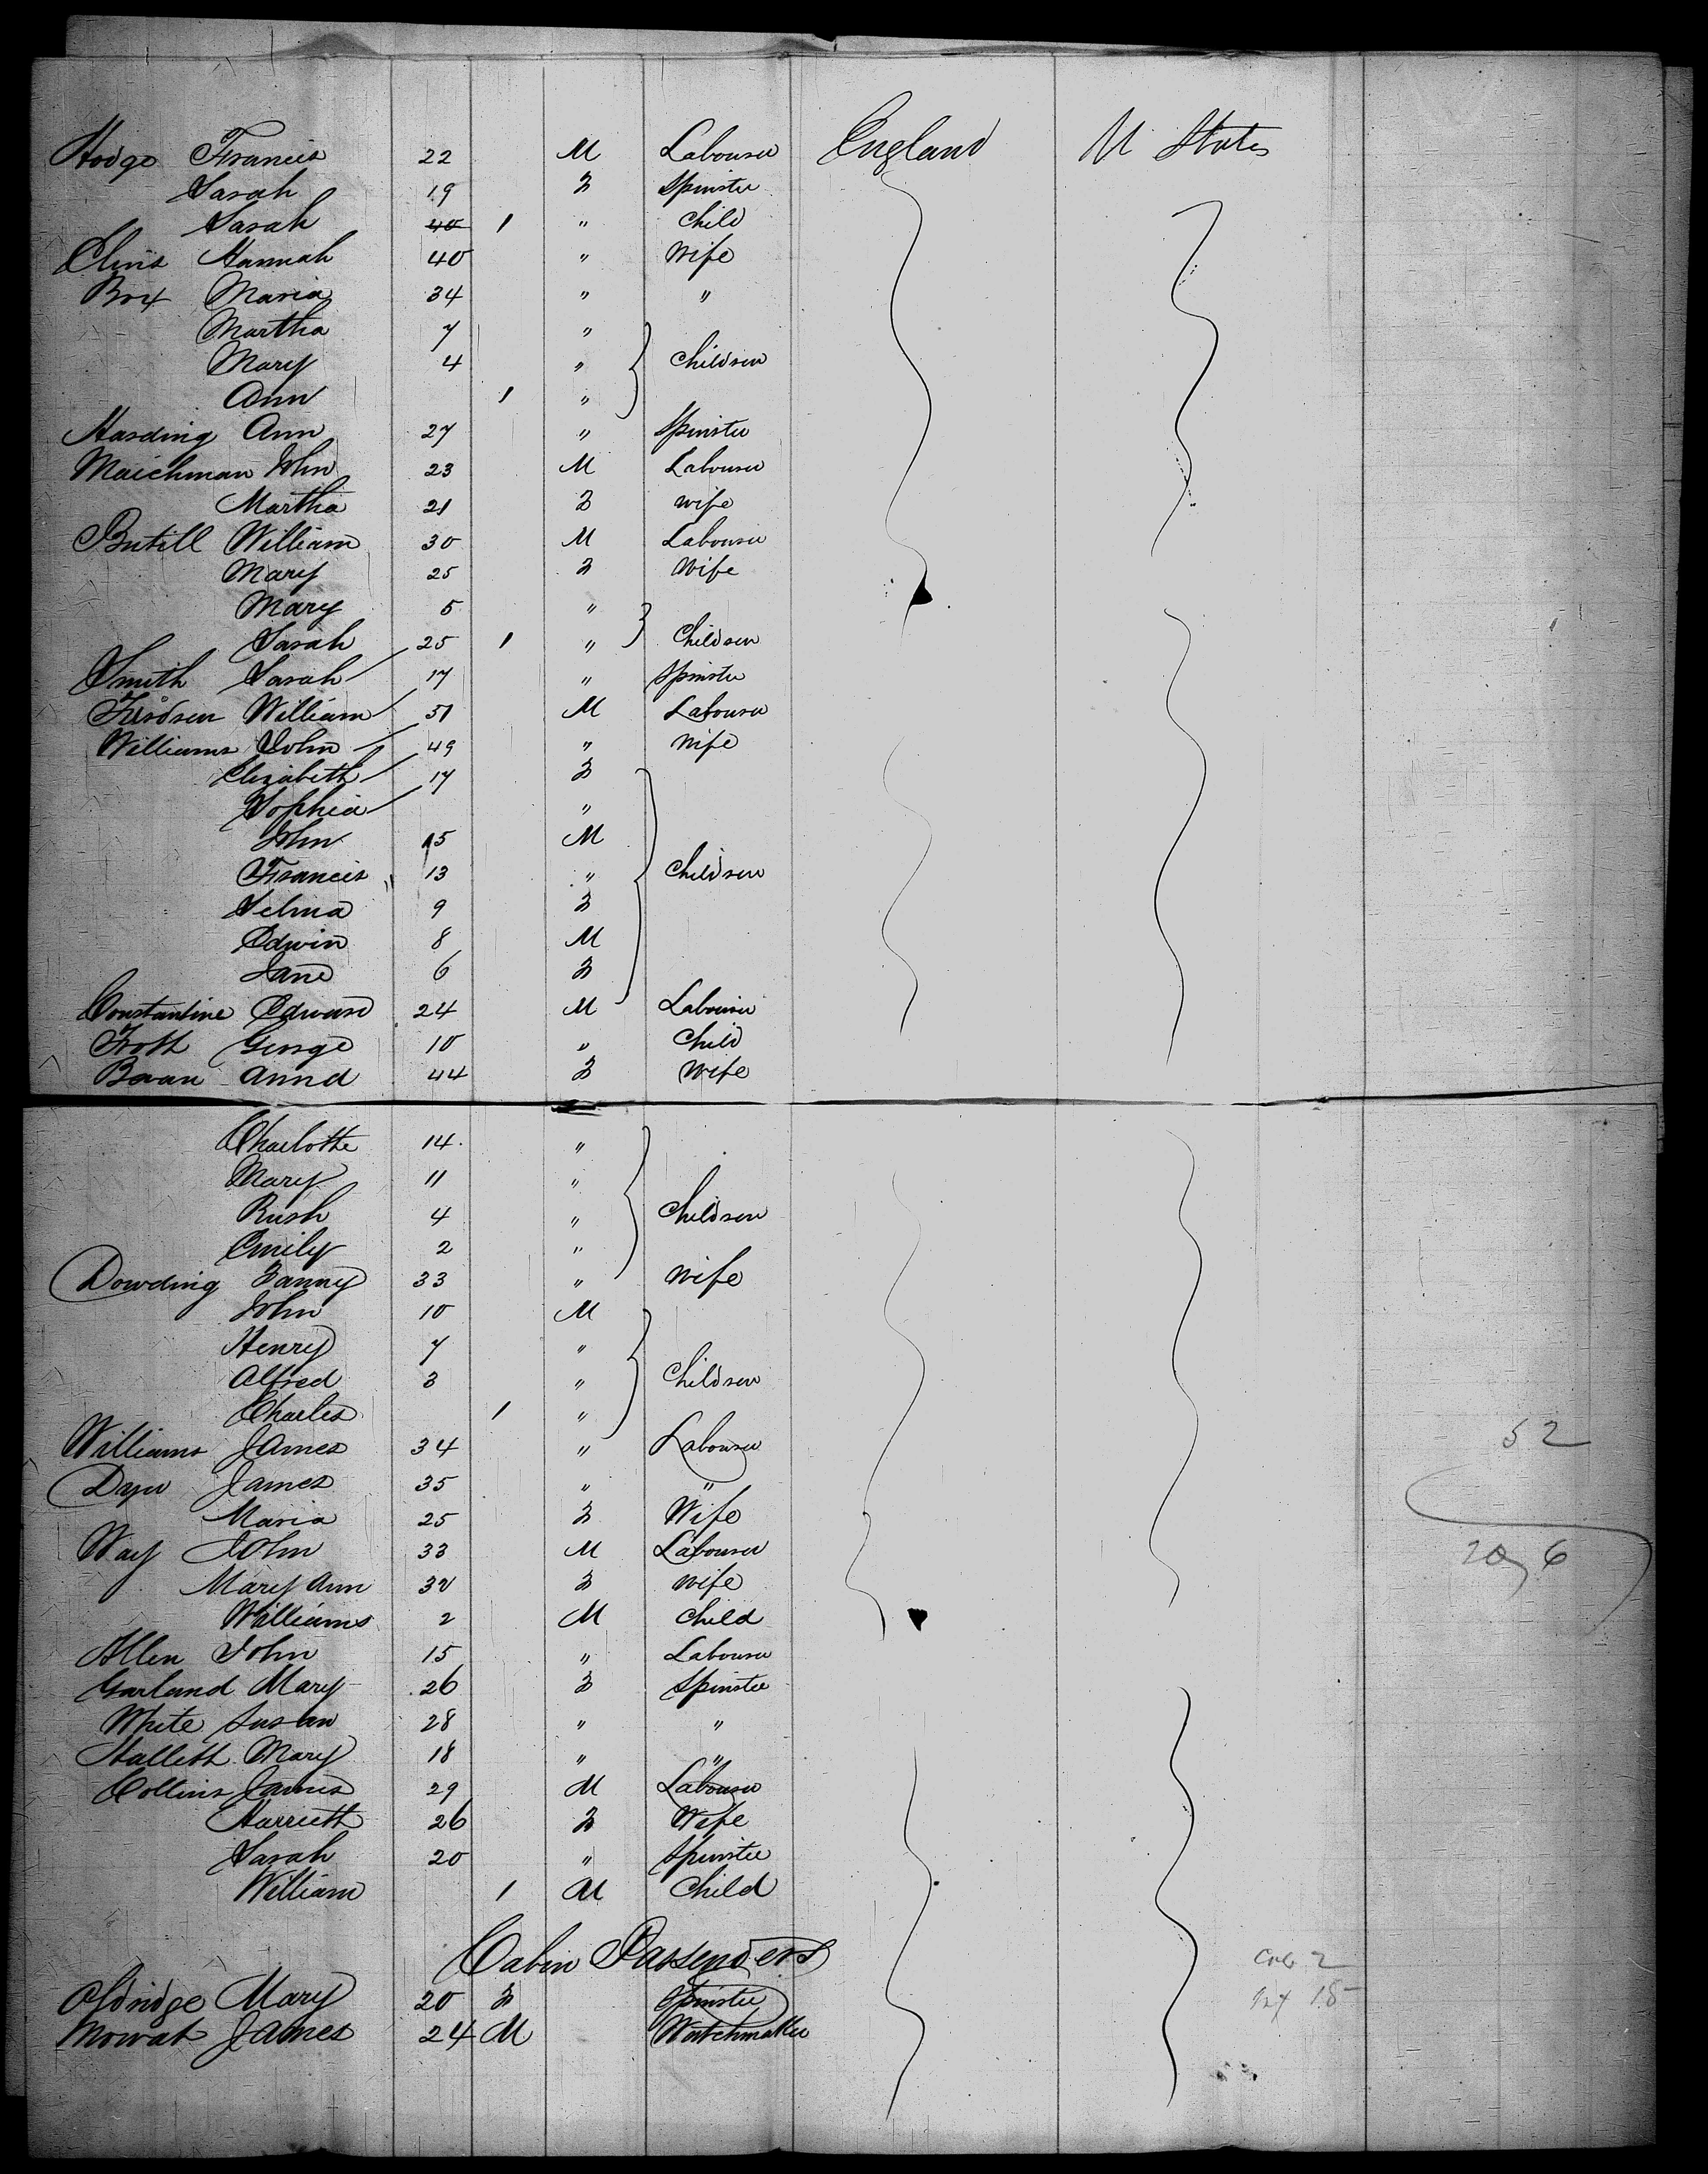 Hodge Francis 22 M Labourer England U States
Sarah 19 F Spinster
Sarah 40 1 " Child
Hannah 40 " Wife
Box Maria 34 " "
Martha 7 "
Mary 4 " Children
Ann 1 "
Harding Ann 27 " Spinster
Maichman John 23 M Labourer
Martha 21 F Wife
Butill William 30 M Labourer
Mary 25 F Wife
Mary 5 "
Sarah 25 1 " Children
Smith Sarah 17 " Spinster
William 51 M Labourer
Williams John 49 " Wife
Elizabeth 17 F
Sophia "
John 15 M
Francis 13 " Children
Selina 9 F
Edwin 8 M
Jane 6 F
Constantine Edward 24 M Labourer
Froth George 10 " Child
Bevan Anna 44 F Wife
Charlotte 14 "
Mary 11 "
Rush 4 " Children
Emily 2 "
Dowding Fanny 33 " Wife
John 10 M
Henry 7 "
Alfred 3 " Children
Charles 1 "
Williams James 34 " Labourer 52
Dyer James 35 " "
Maria 25 F Wife
Way John 33 M Labourer 6
Mary Ann 32 F Wife
Williams 2 M Child
Allen John 15 " Labourer
Garland Mary 26 F Spinster
White Susan 28 " "
Halleth Mary 18 " "
Collins James 29 M Labourer
Harrieth 26 F Wife
Sarah 20 " Spinster
William 1 M Child
Cabin Passengers
Aldridge Mary 20 F Spinster
Mowat James 24 M Watchmaker